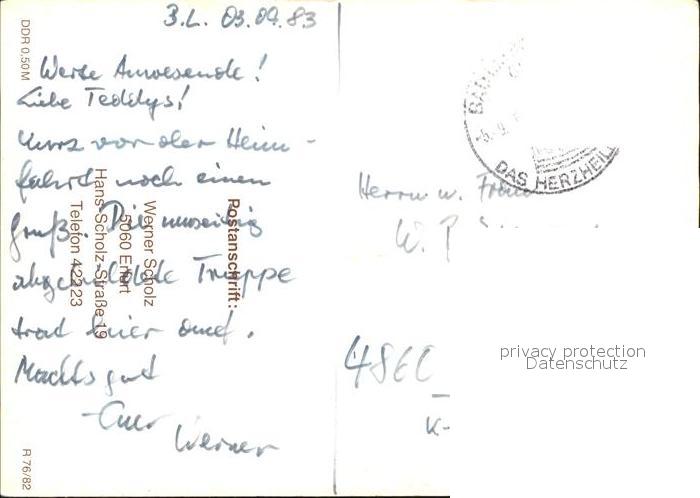 B.L. 03.09.83
DDR 0,50 M
Werte Anwesende!
Liebe Teddys!
Kurz vor der Heim-
fahrt noch einen
Gruß. Die umseitig
abgebildete Truppe
trat hier auf.
Machts gut
Euer
Werner
R 76/82
Postanschrift:
Werner Scholz
5060 Erfurt
Hans-Scholz-Straße 19
Telefon 42223
BAD
DAS HERZHEIL
Herrn u. Frau
W. P
48
K-
privacy protection
Datenschutz